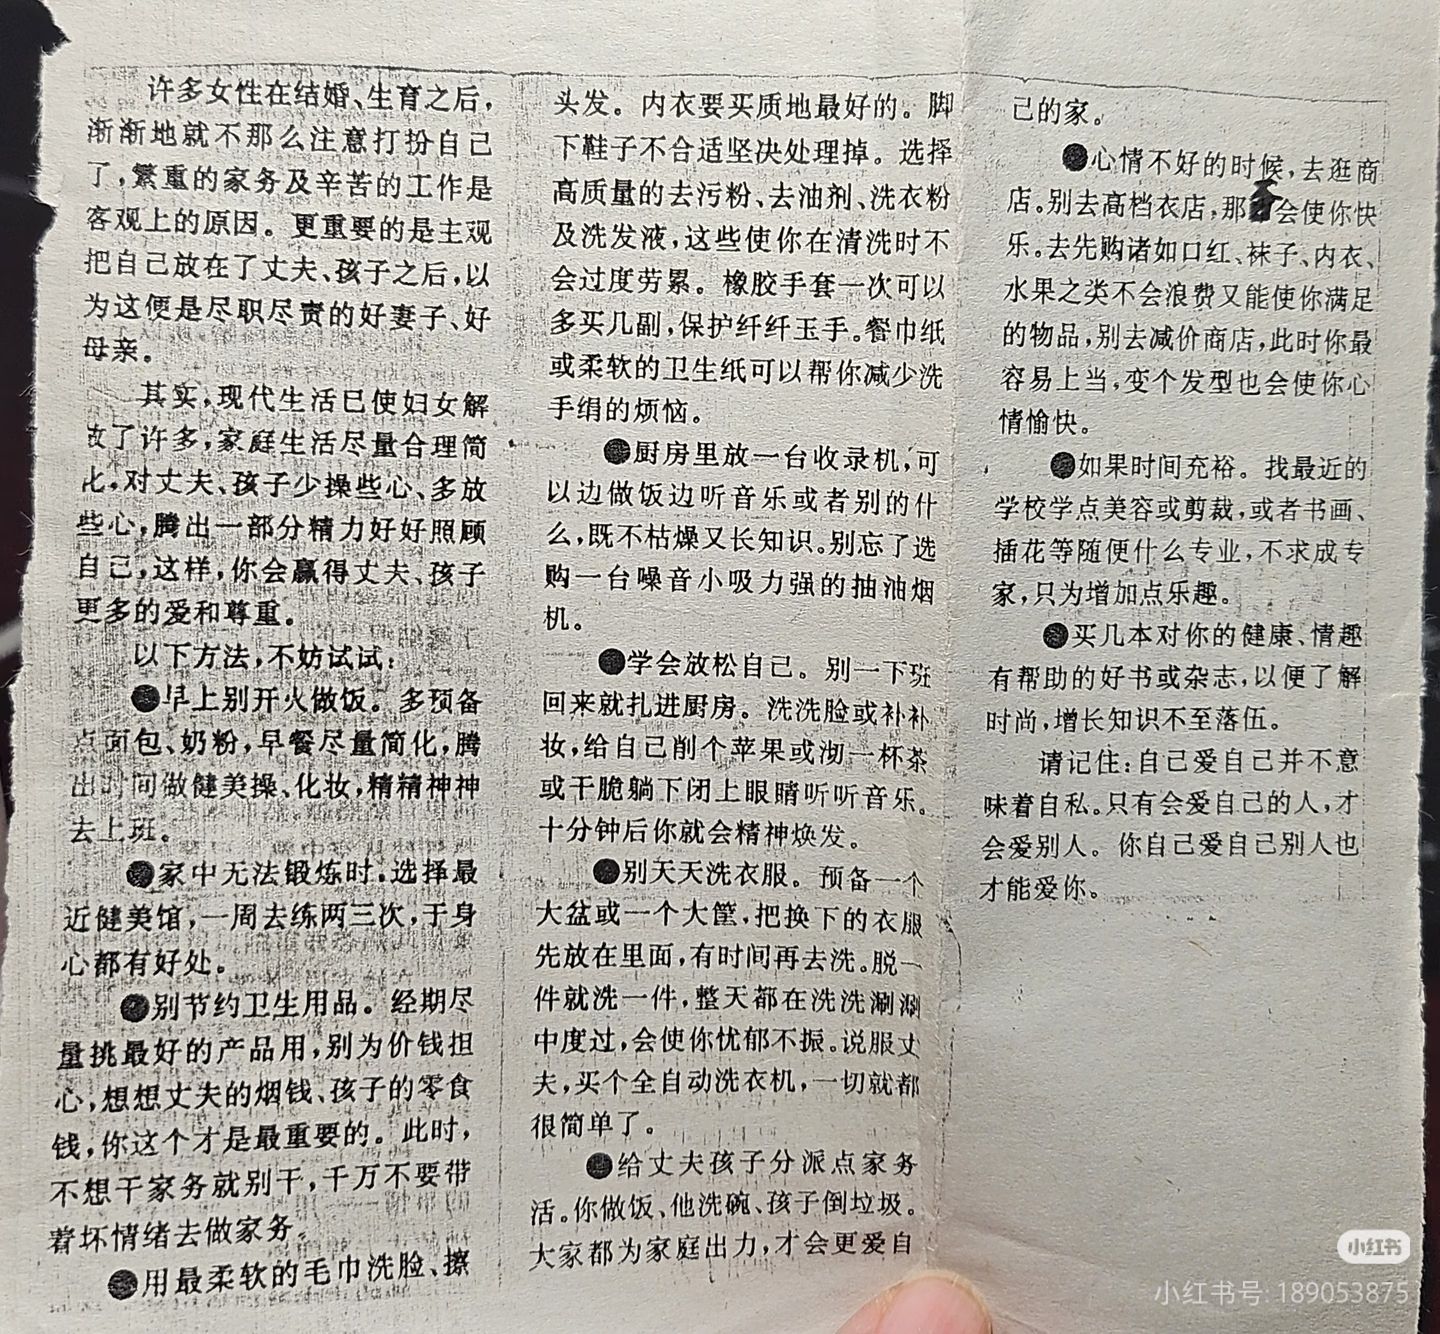 许多女性在结婚、生育之后，
渐渐地就不那么注意打扮自己
了，繁重的家务及辛苦的工作是
客观上的原因。更重要的是主观
把自己放在了丈夫、孩子之后，以
为这便是尽职尽责的好妻子、好
母亲。
其实，现代生活已使妇女解
放了许多，家庭生活尽量合理简
化，对丈夫、孩子少操些心、多放
些心，腾出一部分精力好好照顾
自己，这样，你会赢得丈夫、孩子
更多的爱和尊重。
以下方法，不妨试试：
●早上别开火做饭。多预备
点面包、奶粉，早餐尽量简化，腾
出时间做健美操、化妆，精精神神
去上班。
●家中无法锻炼时，选择最
近健美馆，一周去练两三次，于身
心都有好处。
●别节约卫生用品。经期尽
量挑最好的产品用，别为价钱担
心，想想丈夫的烟钱、孩子的零食
钱，你这个才是最重要的。此时，
不想干家务就别干，千万不要带
着坏情绪去做家务。
●用最柔软的毛巾洗脸、擦
头发。内衣要买质地最好的。脚
下鞋子不合适坚决处理掉。选择
高质量的去污粉、去油剂、洗衣粉
及洗发液，这些使你在清洗时不
会过度劳累。橡胶手套一次可以
多买几副，保护纤纤玉手。餐巾纸
或柔软的卫生纸可以帮你减少洗
手绢的烦恼。
●厨房里放一台收录机，可
以边做饭边听音乐或者别的什
么，既不枯燥又长知识。别忘了选
购一台噪音小吸力强的抽油烟
机。
●学会放松自己。别一下班
回来就扎进厨房。洗洗脸或补补
妆，给自己削个苹果或沏一杯茶
或干脆躺下闭上眼睛听听音乐。
十分钟后你就会精神焕发。
●别天天洗衣服。预备一个
大盆或一个大筐，把换下的衣服
先放在里面，有时间再去洗。脱一
件就洗一件，整天都在洗洗涮涮
中度过，会使你忧郁不振。说服丈
夫，买个全自动洗衣机，一切就都
很简单了。
●给丈夫孩子分派点家务
活。你做饭、他洗碗、孩子倒垃圾。
大家都为家庭出力，才会更爱自
己的家。
●心情不好的时候，去逛商
店。别去高档衣店，那会使你快
乐。去先购诸如口红、袜子、内衣、
水果之类不会浪费又能使你满足
的物品，别去减价商店，此时你最
容易上当，变个发型也会使你心
情愉快。
●如果时间充裕。找最近的
学校学点美容或剪裁，或者书画、
插花等随便什么专业，不求成专
家，只为增加点乐趣。
●买几本对你的健康、情趣
有帮助的好书或杂志，以便了解
时尚，增长知识不至落伍。
请记住：自己爱自己并不意
味着自私。只有会爱自己的人，才
会爱别人。你自己爱自己别人也
才能爱你。
小红书
小红书号：189053875